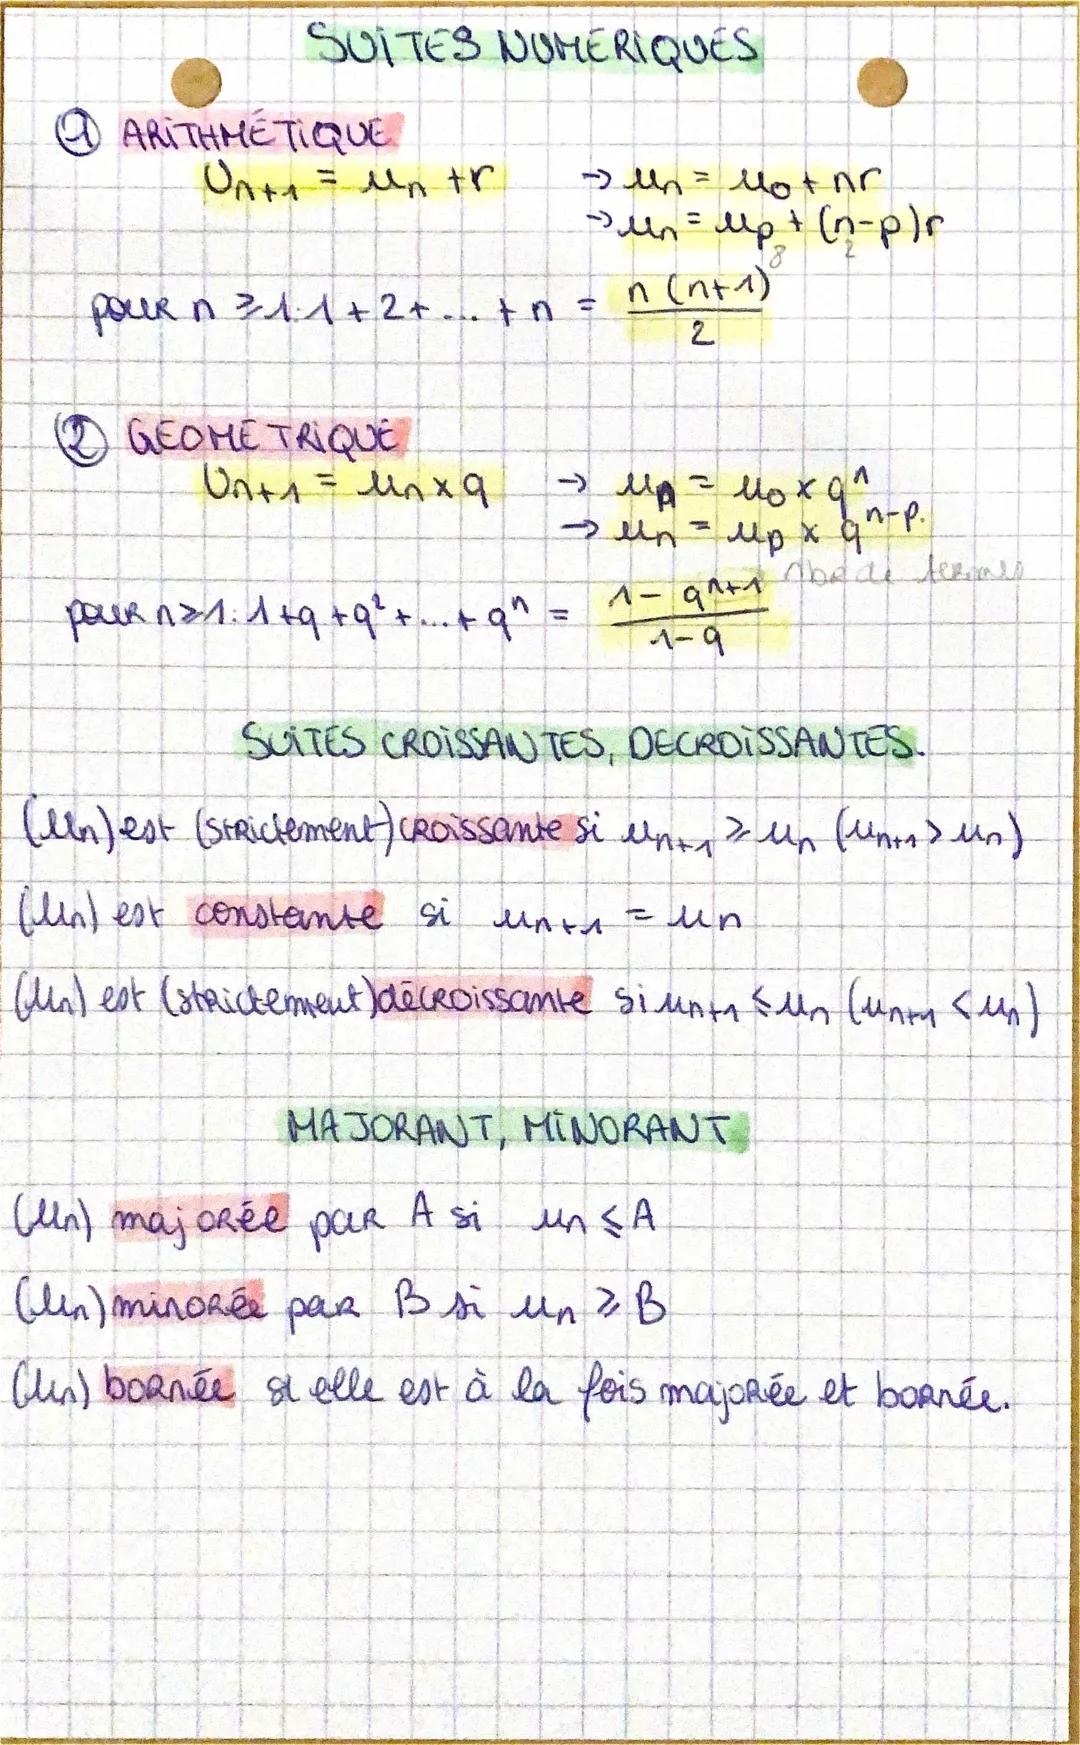 SUITES NUMERIQUES
① ARITHMÉTIQUE
Un+1 = un + r → un = u0 + nr
→ un = up + (n-p)r
8 2
pour n ≥ 1: 1 + 2 + ... + n = n (n+1) / 2
② GEOMETRIQUE
Un+1 = un x q → un = u0 x qⁿ
→ un = up x qⁿ⁻ᵖ.
nbr de termes
pour n ≥ 1: 1 + q + q² + ... + qⁿ = 1 - qⁿ⁺¹ / 1 - q
SUITES CROISSANTES, DECROISSANTES.
(un) est (strictement) croissante si un+1 ≥ un (un+1 > un)
(un) est constante si un+1 = un
(un) est (strictement) décroissante si un+1 ≤ un (un+1 < un)
MAJORANT, MINORANT
(un) majorée par A si un ≤ A
(un) minorée par B si un ≥ B
(un) bornée si elle est à la fois majorée et bornée.